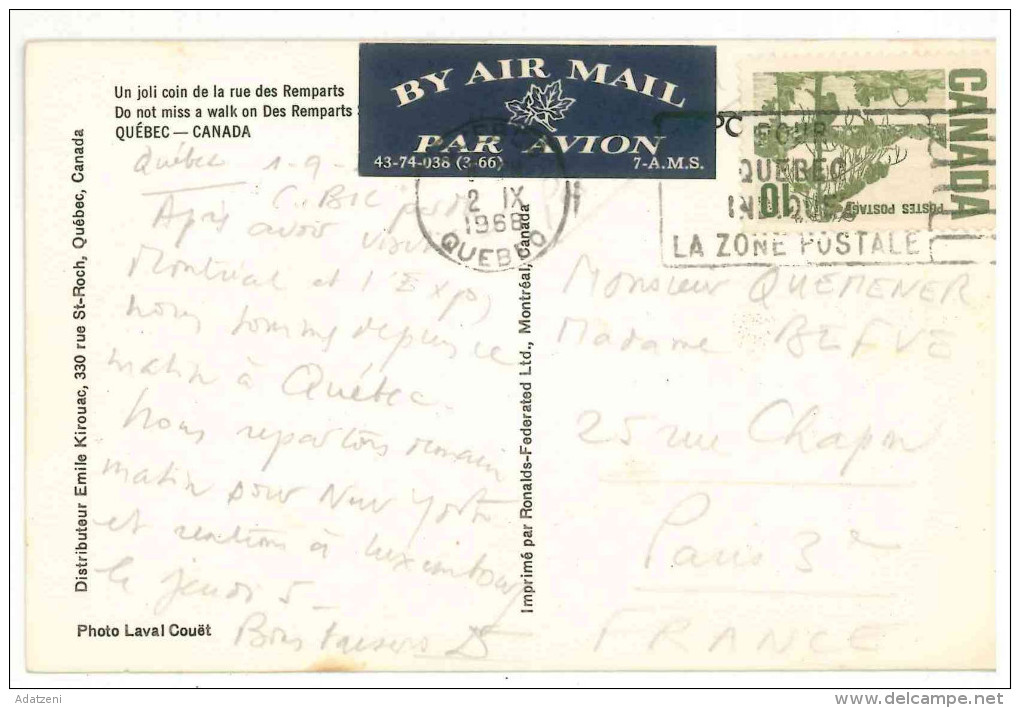 Un joli coin de la rue des Remparts
Do not miss a walk on Des Remparts
QUÉBEC — CANADA
BY AIR MAIL
PAR AVION
43-74-038 (3-66) 7-A.M.S.
2 IX
1968
QUEBEC
POUR
QUEBEC
LA ZONE POSTALE
CANADA
10
POSTES POSTAGE
Québec 1-9-
Après avoir visité
Montréal et l'Expo,
nous sommes depuis ce
matin à Québec.
Nous repartons demain
matin pour New York
et rentrons à Luxembourg
le jeudi 5_
Bons baisers
Monsieur QUEMENER
Madame BLEVE
25 rue Chapon
Paris 3e
FRANCE
Distributeur Emile Kirouac, 330 rue St-Roch, Québec, Canada
Imprimé par Ronalds-Federated Ltd., Montréal, Canada
Photo Laval Couët
Adatzeni
www.delcampe.net